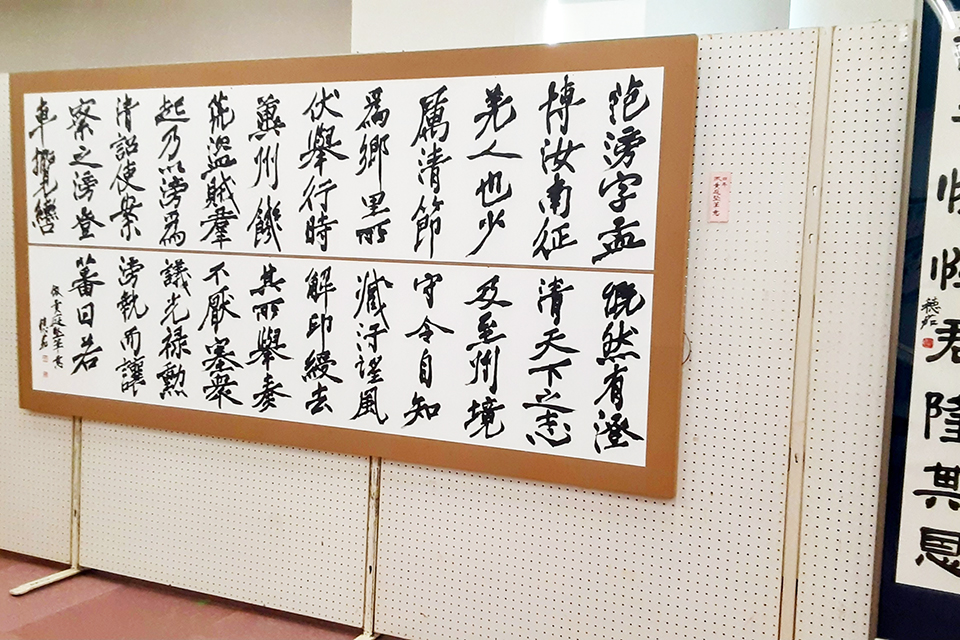 范滂字孟
博汝南征
羌人也少
厲清節
爲鄉里所
伏舉行時
冀州饑
荒盜賊羣
起乃以滂爲
清詔使案
察之滂登
車攬轡
慨然有澄
清天下之志
及至州境
守令自知
臧汙望風
解印綬去
其所舉奏
不厭塞衆
議光禄勲
滂執而讓
蕃曰若
倣黄庭堅筆意
君隆其恩